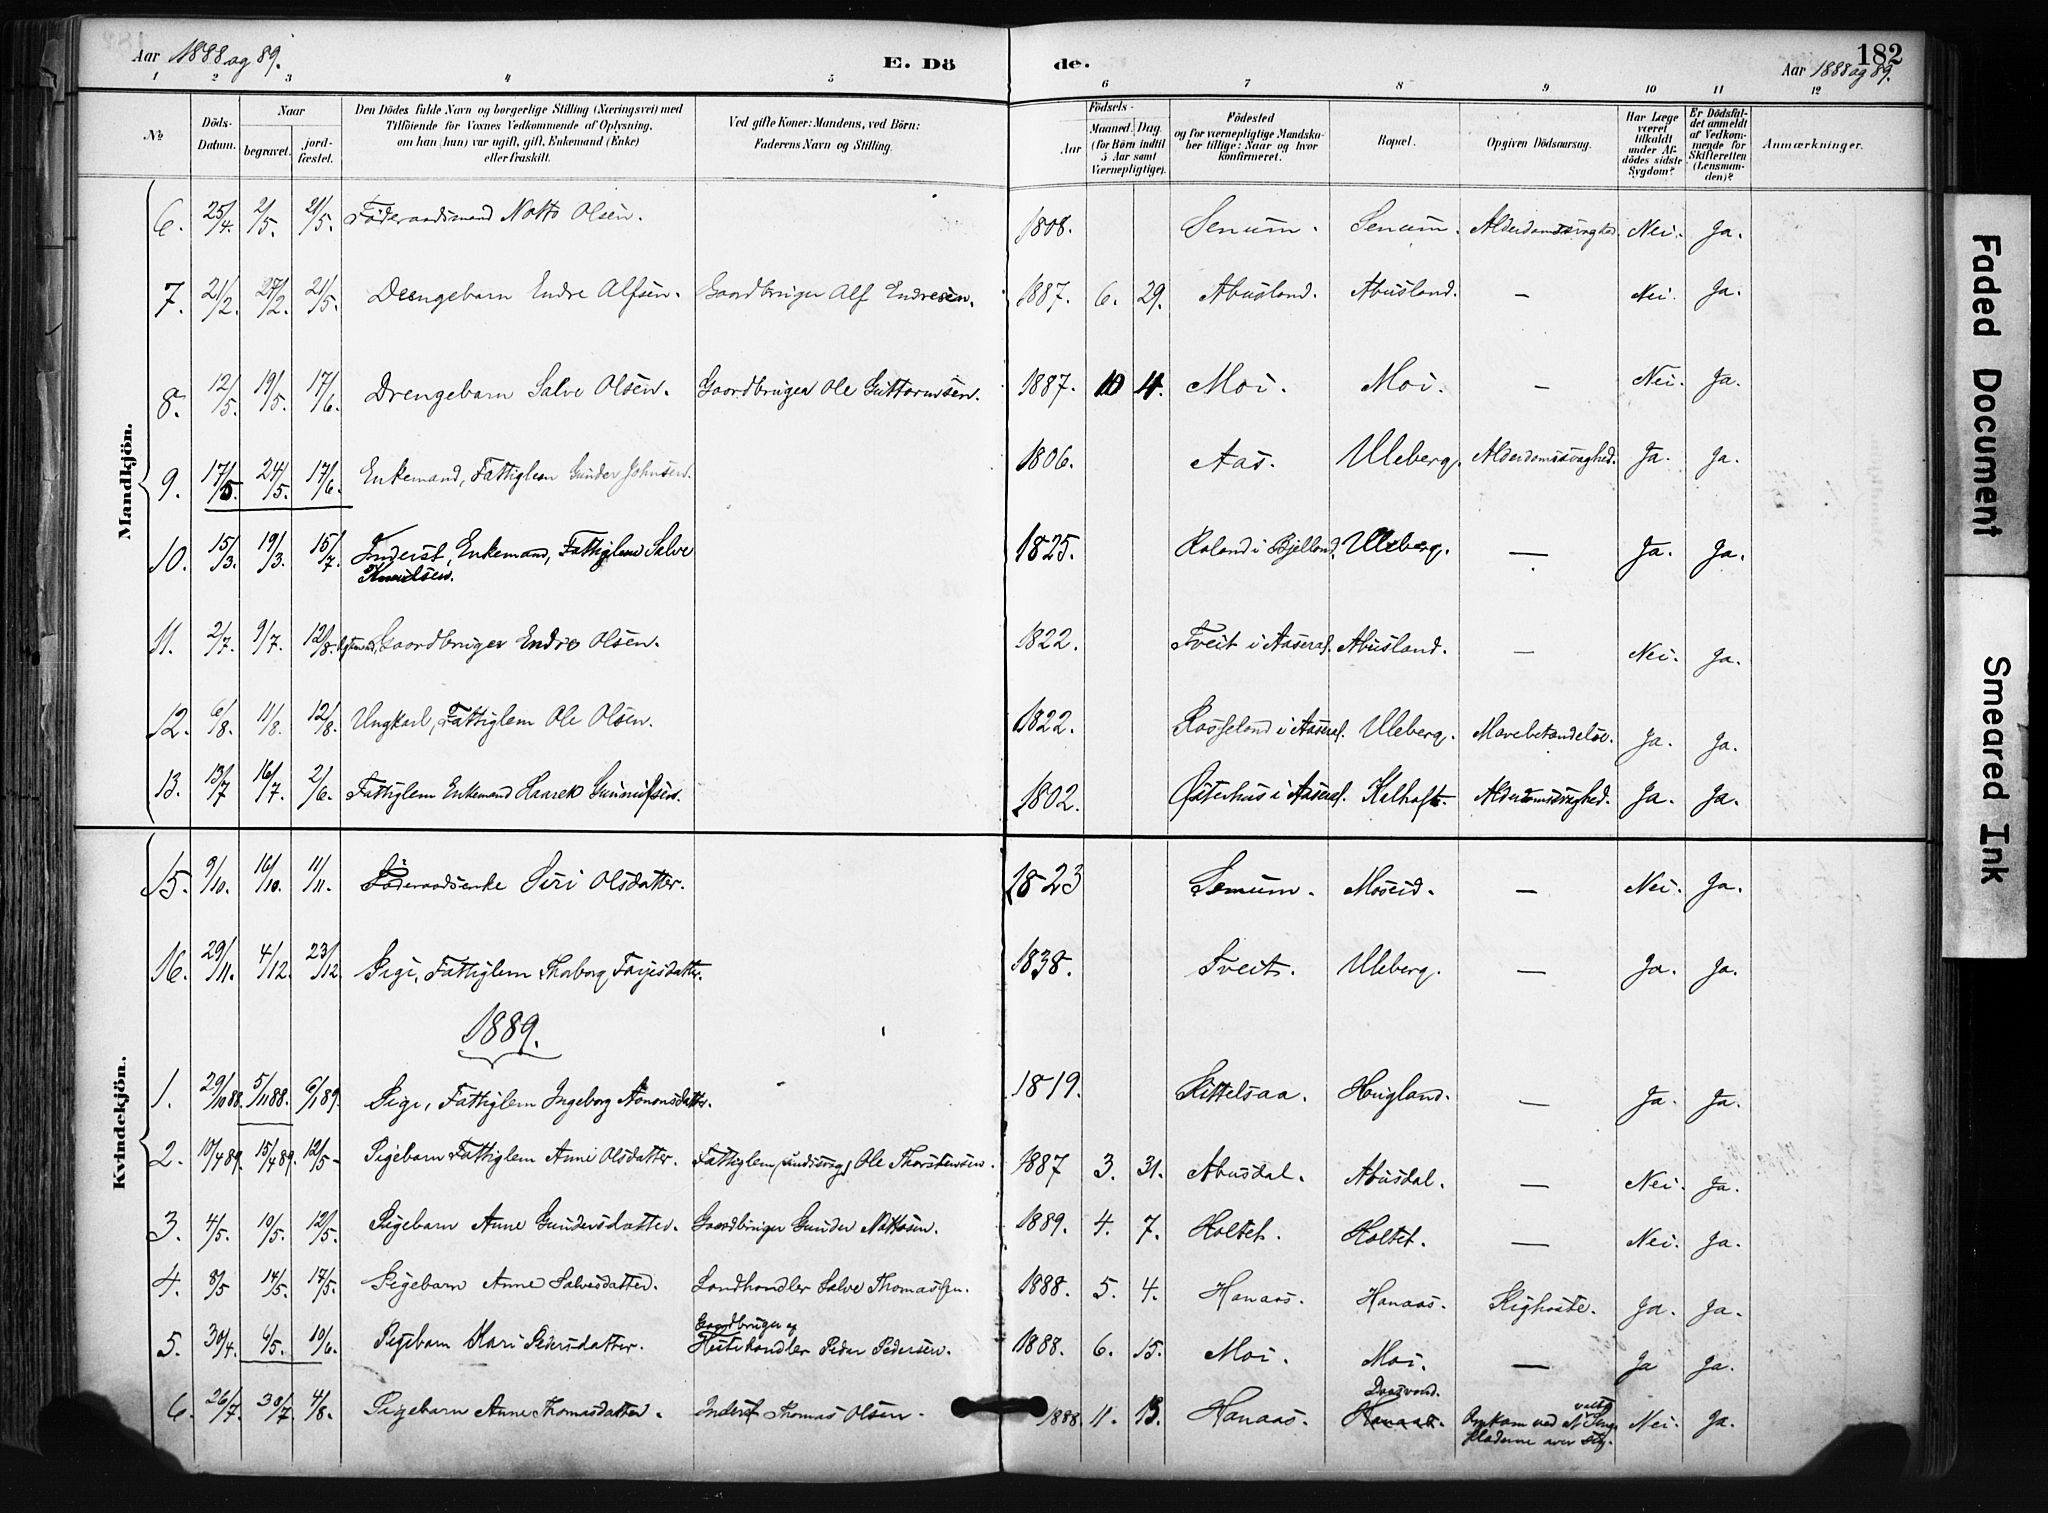 Aar 1888 og 89.
E. Dö
de.
182
Aar 1888 og 89.
1 2 3 4 5 6 7 8 9 10 11 12
No
Döds-Datum.
Naar
begravet.
jord-fæstet.
Den Dödes fulde Navn og borgerlige Stilling (Næringsvei) med
Tilföiende for Voxnes Vedkommende af Oplysning,
om han (hun) var ugift, gift, Enkemand (Enke)
eller fraskilt.
Ved gifte Koner: Mandens, ved Börn:
Faderens Navn og Stilling.
Födsels-
Aar
Maaned. Dag.
(for Börn indtil
5 Aar samt
Værnepligtige).
Födested
og for værnepligtige Mandska-
ber tillige: Naar og hvor
konfirmeret.
Bopæl.
Opgiven Dödsaarsag.
Har Læge
været
tilkaldt
under Af-
dödes sidste
Sygdom?
Er Dödsfal-
det anmeldt
af Vedkom-
mende for
Skifteretten
(Lensman-
den)?
Anmærkninger.
Mandkjön.
6. 25/4. 2/5. 21/5. Föderaadsmand Notto Olsen. 1808. Senum. Senum. Alderdomssvaghed. Nei. Ja.
7. 21/2. 27/2. 21/5. Drengebarn Endre Alfsen. Gaardbruger Alf Endresen. 1887. 6. 29. Abusland. Abusland. — Nei. Ja.
8. 12/5. 19/5. 17/6. Drengebarn Salve Olsen. Gaardbruger Ole Guttormsen. 1887. 10 4. Moi. Moi. — Nei. Ja.
9. 17/5. 24/5. 17/6. Enkemand, Fattiglem Gunder Johnsen. 1806. Aas. Uleberg. Alderdomssvaghed. Ja. Ja.
10. 15/3. 19/3. 15/7. Inderst, Enkemand, Fattiglem Salve
Knudsen. 1825. Roland i Bjelland. Uleberg. — Ja. Ja.
11. 2/7. 9/7. 12/8. Gaardbruger Endre Olsen. 1822. Tveit i Aaseral. Abusland. — Nei. Ja.
12. 6/8. 11/8. 12/8. Ungkarl, Fattiglem Ole Olsen. 1822. Rosseland i Aaseral. Uleberg. Mavebetændelse. Ja. Ja.
13. 13/7 16/7. 2/6. Fattiglem Enkemand Haarek Gunnufsen. 1802. Østerhus i Aaseral. Kalhoft. Alderdomssvaghed. Ja. Ja.
Kvindekjön.
15. 9/10. 16/10. 11/11. Föderaadsenke Siri Olsdatter. 1823 Senum. Moseid. — Nei. Ja.
16. 29/11. 4/12. 23/12. Pige, Fattiglem Thorborg Terjesdatter. 1838. Tveit. Uleberg. — Ja. Ja.
1889.
1. 29/10 88. 5/11 88. 6/1 89. Pige, Fattiglem Ingeborg Aanonsdatter. 1819. Kittelsaa. Haugland. — Ja. Ja.
2. 10/4 89. 15/4 89. 12/5 Pigebarn Fattiglem Anne Olsdatter. Fattiglem, Ole Thorstensen. 1887 3. 31. Abusdal. Abusdal. — Nei. Ja.
3. 4/5. 10/5. 12/5. Pigebarn Anne Gundersdatter. Gaardbruger Gunder Nottosen. 1889. 4. 7. Holtet. Holtet. — Nei. Ja.
4. 8/5 14/5. 17/5. Pigebarn Anne Salvesdatter. Landhandler Salve Thomassen. 1888. 5. 4. Hanaas. Hanaas. Kighoste. Ja. Ja.
5. 30/4. 6/5. 10/6. Pigebarn Kari Pedersdatter. Gaardbruger og
Hestehandler Peder Pedersen. 1888. 6. 15. Moi. Moi. — Ja Ja.
6. 26/7. 30/7 4/8. Pigebarn Anne Thomasdatter. Inderst Thomas Olsen. 1888. 11. 13. Hanaas. Hanaas. Omkom ved at
Klæderne over sig. Nei. Ja.
Faded Document
Smeared Ink